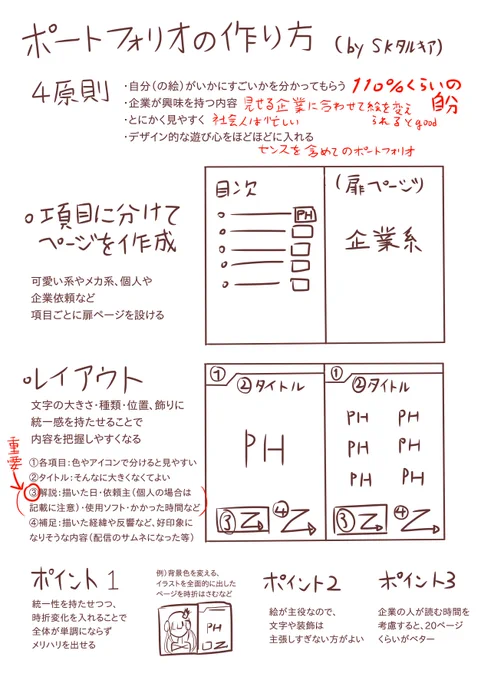 ポートフォリオの作り方 (by SKタルキア)
4原則
・自分(の絵)がいかにすごいかを分かってもらう 110%くらいの自分
・企業が興味を持つ内容 見せる企業に合わせて絵を変えられるとgood
・とにかく見やすく 社会人は忙しい
・デザイン的な遊び心をほどほどに入れる
センスを含めてのポートフォリオ
○項目に分けて
ページを作成
可愛い系やメカ系、個人や
企業依頼など
項目ごとに扉ページを設ける
目次
PH
(扉ページ)
企業系
○レイアウト
文字の大きさ・種類・位置、飾りに
統一感を持たせることで
内容を把握しやすくなる
重要
①各項目:色やアイコンで分けると見やすい
②タイトル:そんなに大きくなくてよい
③解説:描いた日・依頼主(個人の場合は
記載に注意)・使用ソフト・かかった時間など
④補足:描いた経緯や反響など、好印象に
なりそうな内容(配信のサムネになった等)
①
②タイトル
PH
③
④
①
②タイトル
PH PH
PH PH
PH PH
③
④
ポイント1
統一性を持たせつつ、
時折変化を入れることで
全体が単調にならず
メリハリを出せる
例)背景色を変える、
イラストを全面的に出した
ページを時折はさむなど
PH
ポイント2
絵が主役なので、
文字や装飾は
主張しすぎない方がよい
ポイント3
企業の人が読む時間を
考慮すると、20ページ
くらいがベター